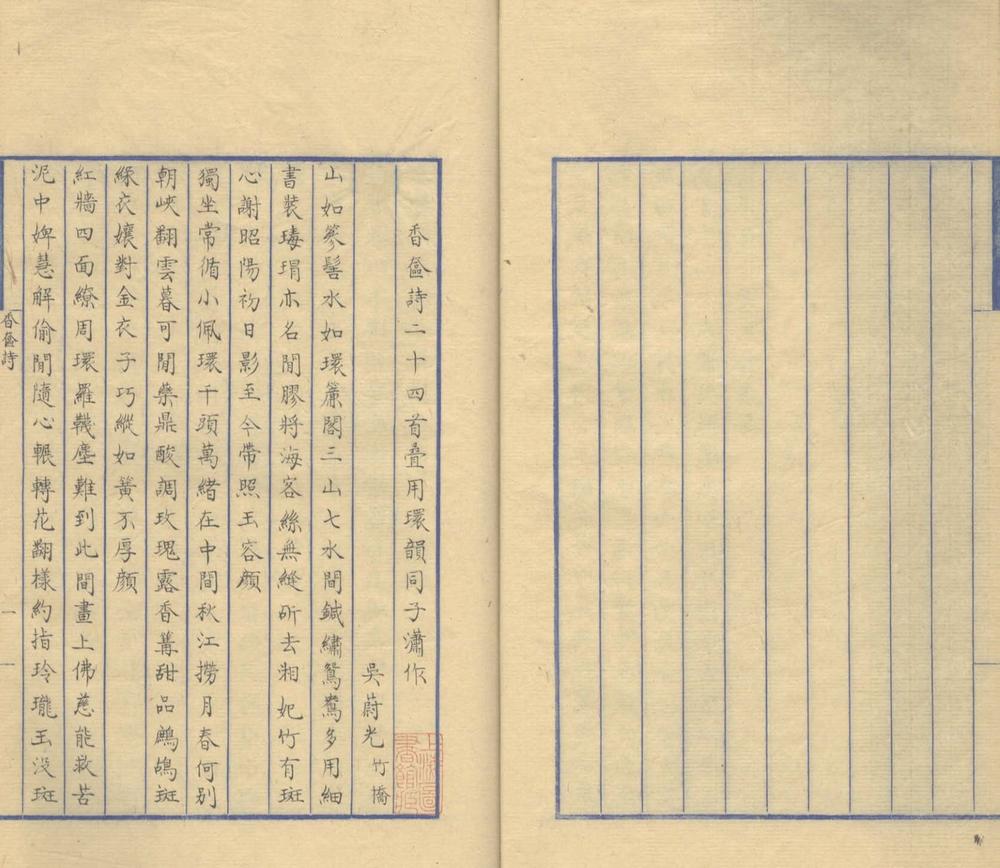 香奩詩二十四首疊用環韻同子瀟作
吳蔚光竹橋
山如篸髻水如環簾閣三山七水間鍼繡鴛鴦多用細
書裝瑇瑁亦名閒膠將海客絲無縫斫去湘妃竹有斑
心謝昭陽初日影至今帶照玉容顏
獨坐常循小佩環千頭萬緒在中間秋江撈月春何别
朝峽翻雲暮可閒藥鼎酸調玫瑰露香篝甜品鷓鴣斑
綵衣孃對金衣子巧縱如簧不厚顏
紅牆四面繚周環羅韈塵難到此間畫上佛慈能救苦
泥中婢慧解偷閒隨心輾轉花翻樣約指玲瓏玉没斑
香奩詩
一
上海圖書館藏